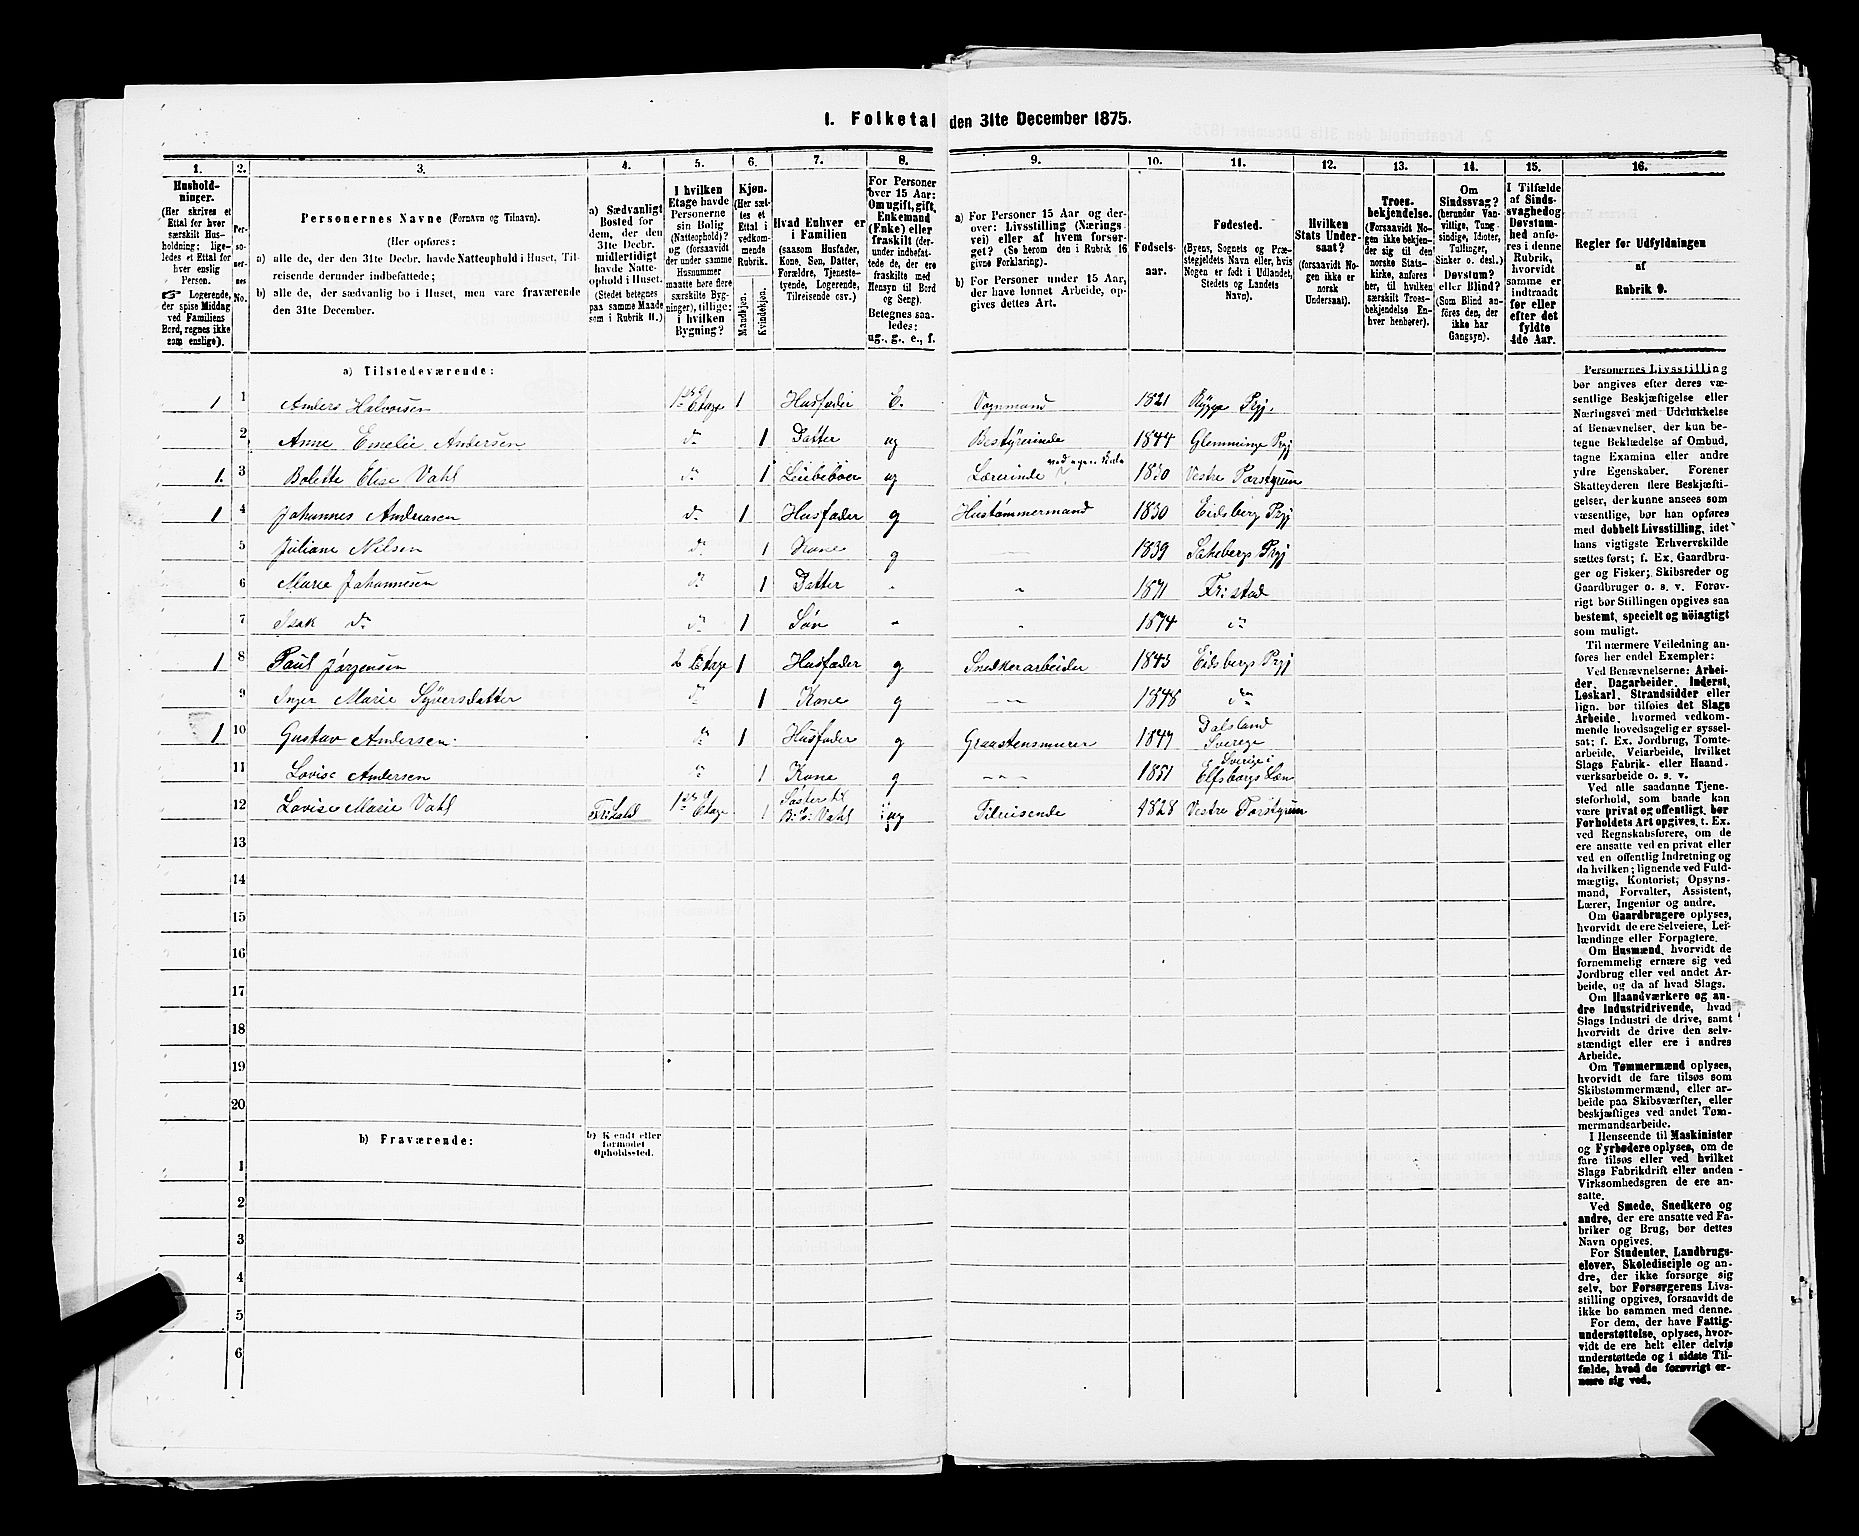 1. Folketal den 31te December 1875.
1. 2. 3. 4. 5. 6. 7. 8. 9. 10. 11. 12. 13. 14. 15. 16.
Husholdninger.
(Her skrives et
Ettal for hver
særskilt Husholdning;
ligeledes et Ettal for
hver enslig
Person.
☞ Logerende,
der spise Middag
ved Familiens
Bord, regnes ikke
som enslige).
Personernes No.
Personernes Navne (Fornavn og Tilnavn).
(Her opføres:
a) alle de, der den 31te Decbr. havde Natteophold i Huset, Tilreisende derunder indbefattede;
b) alle de, der sædvanlig bo i Huset, men vare fraværende
den 31te December.
a) Sædvanligt
Bosted for
dem, der den
31te Decbr.
midlertidigt
havde Natteophold i Huset.
(Stedet betegnes
paa samme Maade
som i Rubrik 11.)
I hvilken
Etage havde
Personerne
sin Bolig
(Natteophold)?
og (forsaavidt
der under samme
Husnummer
maatte høre flere
særskilte Bygninger), tillige:
i hvilken
Bygning?
Kjøn.
(Her sættes et
Ettal i
vedkommende
Rubrik.
Mandkjøn.
Kvindekjøn.
Hvad Enhver er
i Familien
(saasom Husfader,
Kone, Søn, Datter,
Forældre, Tjenestetyende, Logerende,
Tilreisende osv.)
For Personer
over 15 Aar:
Om ugift, gift,
Enkemand
(Enke) eller
fraskilt (derunder indbefattede de, der ere
fraskilte med
Hensyn til Bord
og Seng).
Betegnes saaledes:
ug., g., e., f.
a) For Personer 15 Aar og derover: Livsstilling (Næringsvei) eller af hvem forsørget? (Se herom den i Rubrik 16
givne Forklaring).
b) For Personer under 15 Aar,
der have lønnet Arbeide, opgives dettes Art.
Fødselsaar.
Fødested.
(Byens, Sognets og Præstegjeldets Navn eller, hvis
Nogen er født i Udlandet,
Stedets og Landets
Navn).
Hvilken
Stats Undersaat?
(forsaavidt Nogen ikke er
norsk
Undersaat).
Troesbekjendelse.
(Forsaavidt Nogen ikke bekjender sig til den
norske Statskirke, anføres
her, til hvilken
særskilt Troesbekjendelse Enhver henhører).
Om
Sindssvag?
(herunder Vanvittige, Tungsindige, Idioter,
Tullinger,
Sinker o. desl.)
Døvstum?
eller Blind?
(Som Blind anføres den, der
ikke har
Gangsyn).
I Tilfælde
af Sindssvaghed og
Døvstumhed anføres i denne
Rubrik,
hvorvidt
samme er
indtraadt
før eller
efter det
fyldte
4de Aar.
Regler for Udfyldningen
af
Rubrik 9.
a) Tilstedeværende:
1 1 Anders Halvorsen 1ste Etage 1 Husfader E. Vognmand 1821 Rygge Prgj.
2 Anne Emelie Andersen do 1 Datter ug Bestyrerinde 1844 Glemminge Prgj
1. 3 Bolette Elise Vahl do 1 ug Lærerinde ved egen Skole 1830 Vestre
1 4 Johannes Andreasen do 1 Husfader g Hustømmermand 1830 Eidsberg Prgj
5 Juliane Nilsen do 1 Kone g 1839 Prgj
6 Marie Johannesen do 1 Datter 1871 Fr.stad
7 Isak do do 1 Søn 1874 do
1 8 Paul Jørgensen 2 Etage 1 Husfader g Snedkerarbeider 1843 Eidsbergs Prgj
9 Inger Marie Syversdatter do 1 Kone g 1848 do
1 10 Gustav Andersen. do 1 Husfader g Graastensmurer 1849 Dalsland Sverige
11 Lovise Andersen do 1 Kone g 1851 Sverige i Elfsborgs Læn
12 Lovise Marie Vahl 1ste Etage 1 Søster til Vahl ug Tilreisende 1828 Vestre
13
14
15
16
17
18
19
20
b) Fraværende: b) Kjendt eller
formodet
Opholdssted.
1
2
3
4
5
6
Personernes Livsstilling
bør angives efter deres væsentlige Beskjæftigelse eller
Næringsvei med Udelukkelse
af Benævnelser, der kun betegne Beklædelse af Ombud,
tagne Examina eller andre
ydre Egenskaber. Forener
Skatteyderen flere Beskjæftigelser, der kunne ansees som
væsentlige, bør han opføres
med dobbelt Livsstilling, idet
hans vigtigste Erhvervskilde
sættes først; f. Ex. Gaardbruger og Fisker; Skibsreder og
Gaardbruger o. s. v. Forøvrigt bør Stillingen opgives saa
bestemt, specielt og nøiagtigt
som muligt.
Til nærmere Veiledning anføres her endel Exempler:
Ved Benævnelserne: Arbeider, Dagarbeider, Inderst,
Løskarl, Strandsidder eller
lign. bør tilføies det Slags
Arbeide, hvormed vedkommende hovedsagelig er sysselsat; f. Ex. Jordbrug, Tomtearbeide, Veiarbeide, hvilket
Slags Fabrik- eller Haandværksarbeide o. s. v.
Ved alle saadanne Tjenesteforhold, som baade kan
være privat og offentligt, bør
Forholdets Art opgives, t. Ex.
ved Regnskabsførere, om de
ere ansatte ved en privat eller
ved en offentlig Indretning og
da hvilken; lignende ved Fuldmægtig, Kontorist, Opsynsmand, Forvalter, Assistent,
Lærer, Ingeniør og andre.
Om Gaardbrugere oplyses,
hvorvidt de ere Selveiere, Leilændinge eller Forpagtere.
Om Husmænd, hvorvidt de
fornemmelig ernære sig ved
Jordbrug eller ved andet Arbeide, og da af hvad Slags.
Om Haandværkere og andre Industridrivende, hvad
Slags Industri de drive, samt
hvorvidt de drive den selvstændigt eller ere i andres
Arbeide.
Om Tømmermænd oplyses,
hvorvidt de fare tilsøs som
Skibstømmermænd, eller arbeide paa Skibsværfter, eller
beskjæftiges ved andet Tømmermandsarbeide.
I Henseende til Maskinister
og Fyrbødere oplyses, om de
fare tilsøs eller ved hvilket
Slags Fabrikdrift eller anden
Virksomhedsgren de ere ansatte.
Ved Smede, Snedkere og
andre, der ere ansatte ved Fabriker og Brug, bør dettes
Navn opgives.
For Studenter, Landbrugselever, Skoledisciple og andre, der ikke forsørge sig
selv, bør Forsørgerens Livsstilling opgives, forsaavidt de
ikke bo sammen med denne.
For dem, der have Fattigunderstøttelse, oplyses, hvorvidt de ere helt eller delvis
understøttede og i sidste Tilfælde, hvad de forøvrigt ernære sig ved.